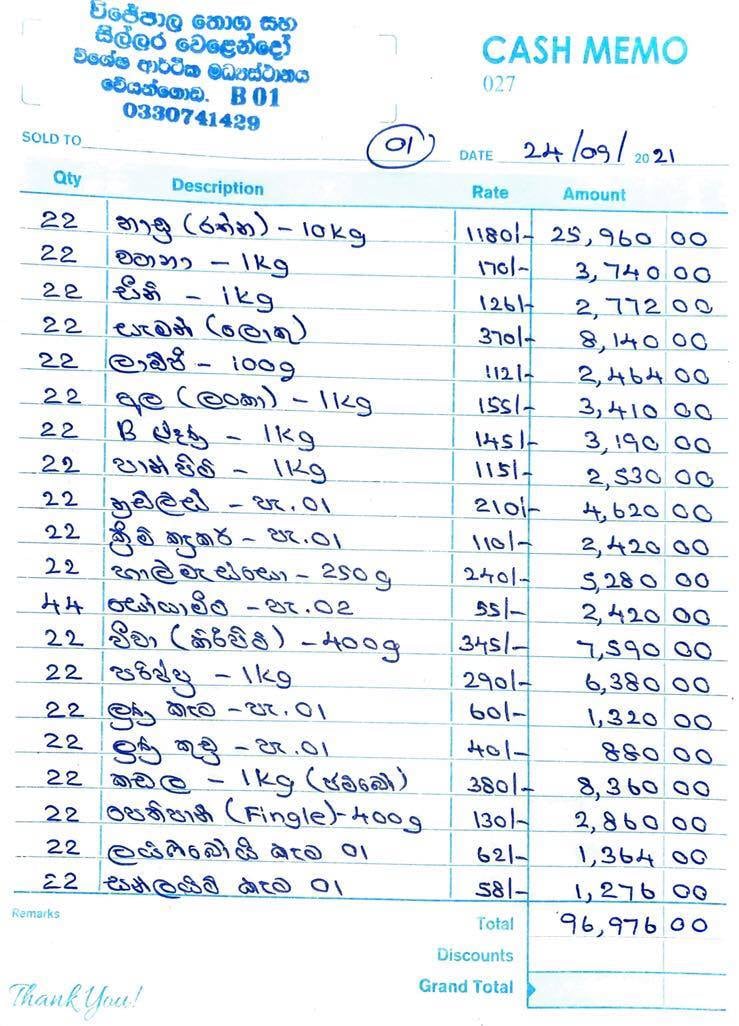 විජේපාල තොග සහ
සිල්ලර වෙළෙන්දෝ
විශේෂ ආර්ථික මධ්‍යස්ථානය
වේයන්ගොඩ. B 01
0330741429
CASH MEMO
027
SOLD TO 01 DATE 24/09/2021
Qty Description Rate Amount
22 නාඩු (රත්න) - 10kg 1180/- 25,960 00
22 - 1kg 170/- 3,740 00
22 සීනි - 1kg 126/- 2,772 00
22 සැමන් (ලොකු) 370/- 8,140 00
22 - 100g 112/- 2,464 00
22 (ලංකා) - 1kg 155/- 3,410 00
22 B - 1kg 145/- 3,190 00
22 පාන් පිටි - 1kg 115/- 2,530 00
22 නූඩ්ල්ස් - පැ. 01 210/- 4,620 00
22 ක්‍රීම් ක්‍රැකර් - පැ. 01 110/- 2,420 00
22 හාල්මැස්සෝ - 250g 240/- 5,280 00
44 සෝයාමීට් - පැ. 02 55/- 2,420 00
22 (කිරිපිටි) - 400g 345/- 7,590 00
22 පරිප්පු - 1kg 290/- 6,380 00
22 ලුණු කැට - පැ. 01 60/- 1,320 00
22 ලුණු කුඩු - පැ. 01 40/- 880 00
22 කඩල - 1kg (ජම්බෝ) 380/- 8,360 00
22 පැණිපානි (Fingle) - 400g 130/- 2,860 00
22 ලයිෆ්බෝයි කැට 01 62/- 1,364 00
22 සන්ලයිට් කැට 01 58/- 1,276 00
Remarks Total 96,976 00
Discounts
Grand Total
Thank You!